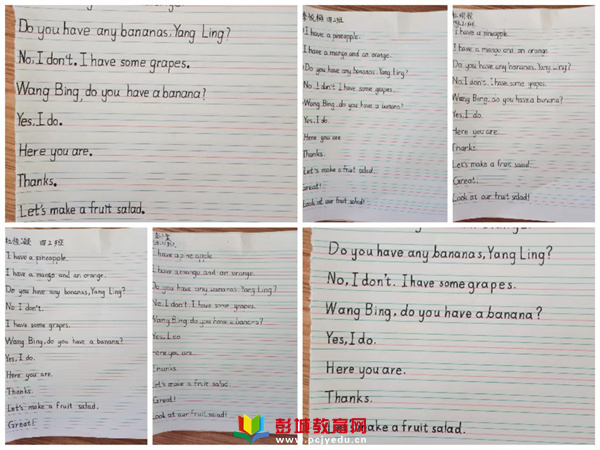 Do you have any bananas, Yang Ling?
No, I don't. I have some grapes.
Wang Bing, do you have a banana?
Yes, I do.
Here you are.
Thanks.
Let's make a fruit salad.
四2班
I have a pineapple.
I have a mango and an orange.
Do you have any bananas, Yang Ling?
No, I don't. I have some grapes.
Wang Bing, do you have a banana?
Yes, I do.
Here you are.
Thanks.
Let's make a fruit salad.
Great!
Look at our fruit salad!
I have a pineapple.
I have a mango and an orange.
Do you have any bananas, Yang Ling?
No, I don't. I have some grapes.
Wang Bing, do you have a banana?
Yes, I do.
Here you are.
Thanks.
Let's make a fruit salad.
Great!
Look at our fruit salad!
四2班
I have a pineapple.
I have a mango and an orange.
Do you have any bananas, Yang Ling?
No I don't.
I have some grapes.
Wang Bing, do you have a banana?
Yes, I do.
Here you are.
Thanks.
Let's make a fruit salad.
Great!
I have a pineapple
I have a mango and an orange.
Do you have any bananas, Yang Ling?
No, I don't. I have some grapes.
Wang Bing, do you have a banana?
Yes, I do
Here you are.
Thanks.
Let's make a fruit salad.
Great!
Look at our fruit salad!
Do you have any bananas, Yang Ling?
No, I don't. I have some grapes.
Wang Bing, do you have a banana?
Yes, I do.
Here you are.
Thanks.
Let's make a fruit salad.
彭城教育网
www.pcjyedu.cn